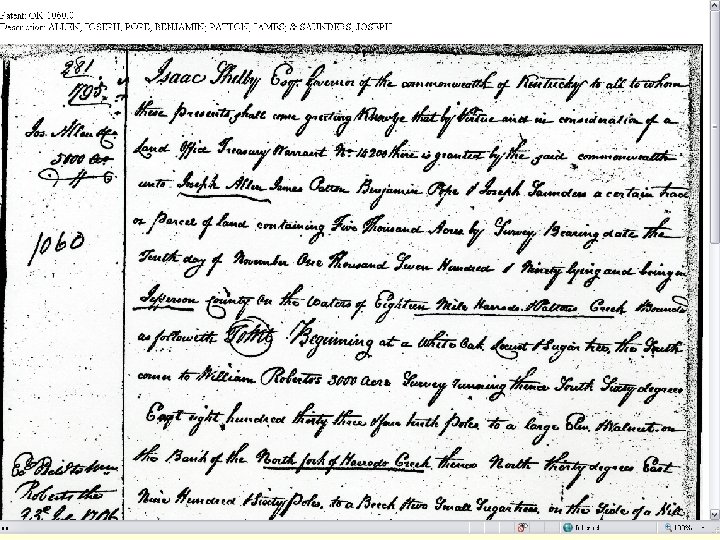 Patent: OK 1060.0
Description: ALLEN, JOSEPH; POPE, BENJAMIN; PATTON, JAMES; & SAUNDERS, JOSEPH
281
Jos. Allen &c
5000 as
1060
Isaac Shelby Esqr. Governor of the commonwealth of Kentucky to all to whom
these Presents shall come greeting Know ye that by Virtue and in consideration of a
Land Office Treasury Warrant No. 14200 there is granted by the said commonwealth
unto Joseph Allen James Patton Benjamin Pope & Joseph Saunders a certain tract
or Parcel of Land containing Five Thousand Acres by Survey Bearing date the
Tenth day of November One Thousand Seven Hundred & Ninety lying and being in
Jefferson County On the Waters of Eighteen Mile Harrods & Pattons Creek & Bounded
as followeth To Wit Beginning at a White Oak, Locust & Sugar tree, the South
corner to William Roberts's 3000 Acre Survey running thence South Sixty degrees
East eight hundred thirty three & four tenth Poles to a large Elm & Walnut on
the Bank of the North fork of Harrods Creek thence North thirty degrees East
Nine Hundred & Sixty Poles, to a Beech & two Small Sugar trees, on the Side of a Hill
Roberts the
100%